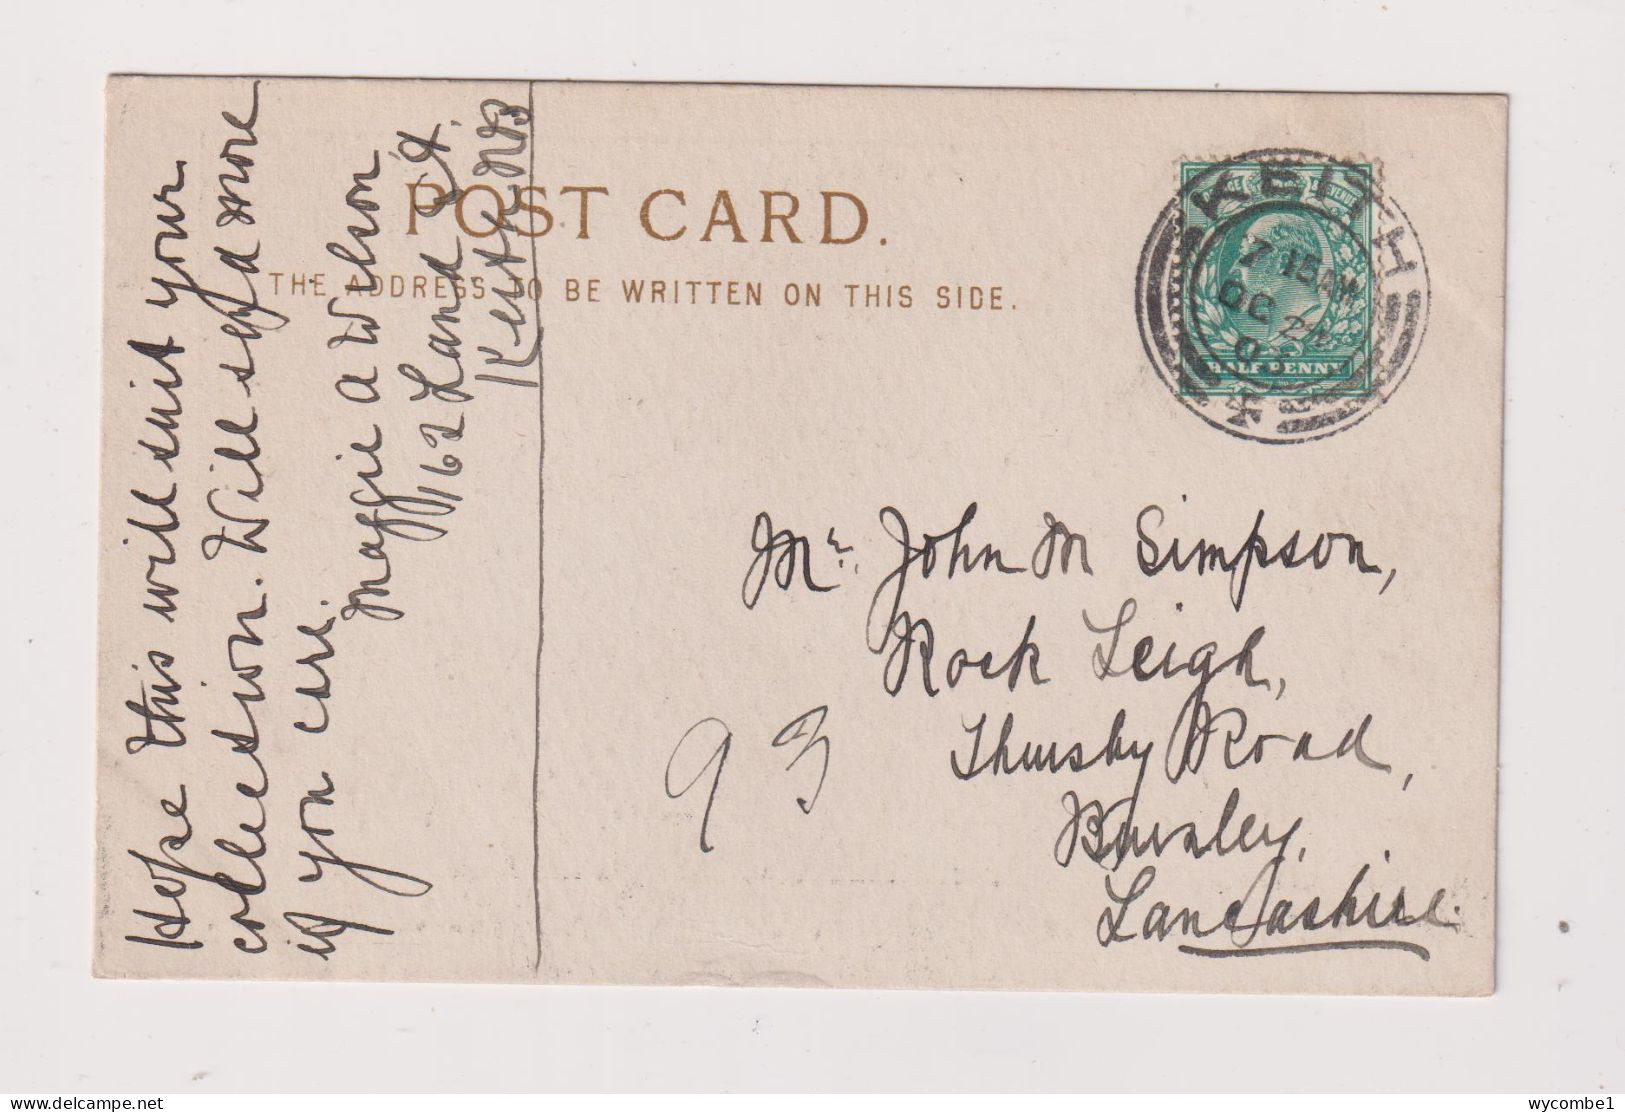 Hope this will suit your
collection. Will send more
if you care.
Maggie A Wilson
162 Land St.
Keith NB
POST CARD.
THE ADDRESS TO BE WRITTEN ON THIS SIDE.
KEITH
7 15AM
OC 24
POSTAGE & REVENUE
HALF PENNY
Mr. John M Simpson,
Rock Leigh,
Thursby Road,
Burnley,
Lancashire.
93
wycombe1